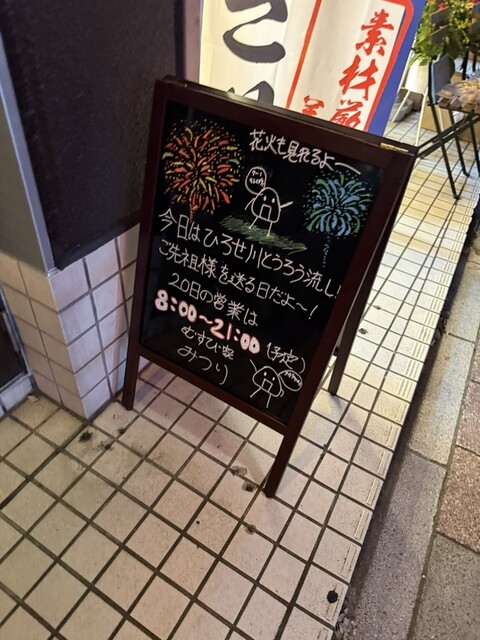 素材厳
花火も見れるよ〜
今日はひろせ川とうろう流し!
ご先祖様を送る日だよ〜!
20日の営業は
8:00〜21:00(予定)
むすび家
みつり